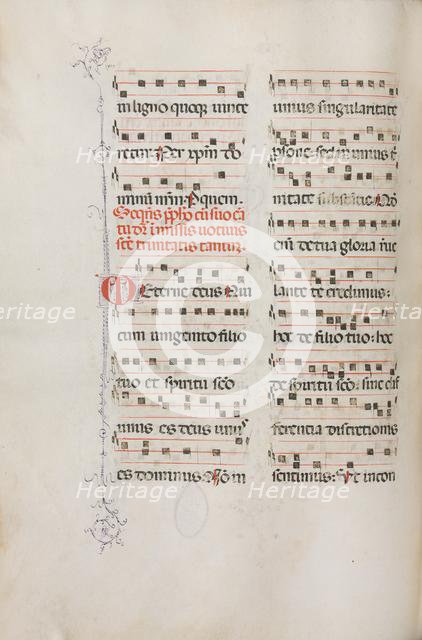 in ligno quoq; vince
retur. Per xpm do
minū nrm. P quem.
Seqñs p̄fatio cū suo cā
tu dr̄ in missis votiuis
scē trinitatis tantū.
Eterne deus Qui
cum unigenito filio
tuo et spiritu scō
unus es deus unus
es dominus. Nō in
unius singularitate
psone: sed in unius t̄
nitate substātie. Qd̄
enī de tua gloria reue
lante te credimus:
hoc de filio tuo: hoc
de spiritu scō: sine dif
ferentia discretionis
sentimus: Ut in con
Heritage
Heritage
Heritage
Heritage
Heritage
Heritage